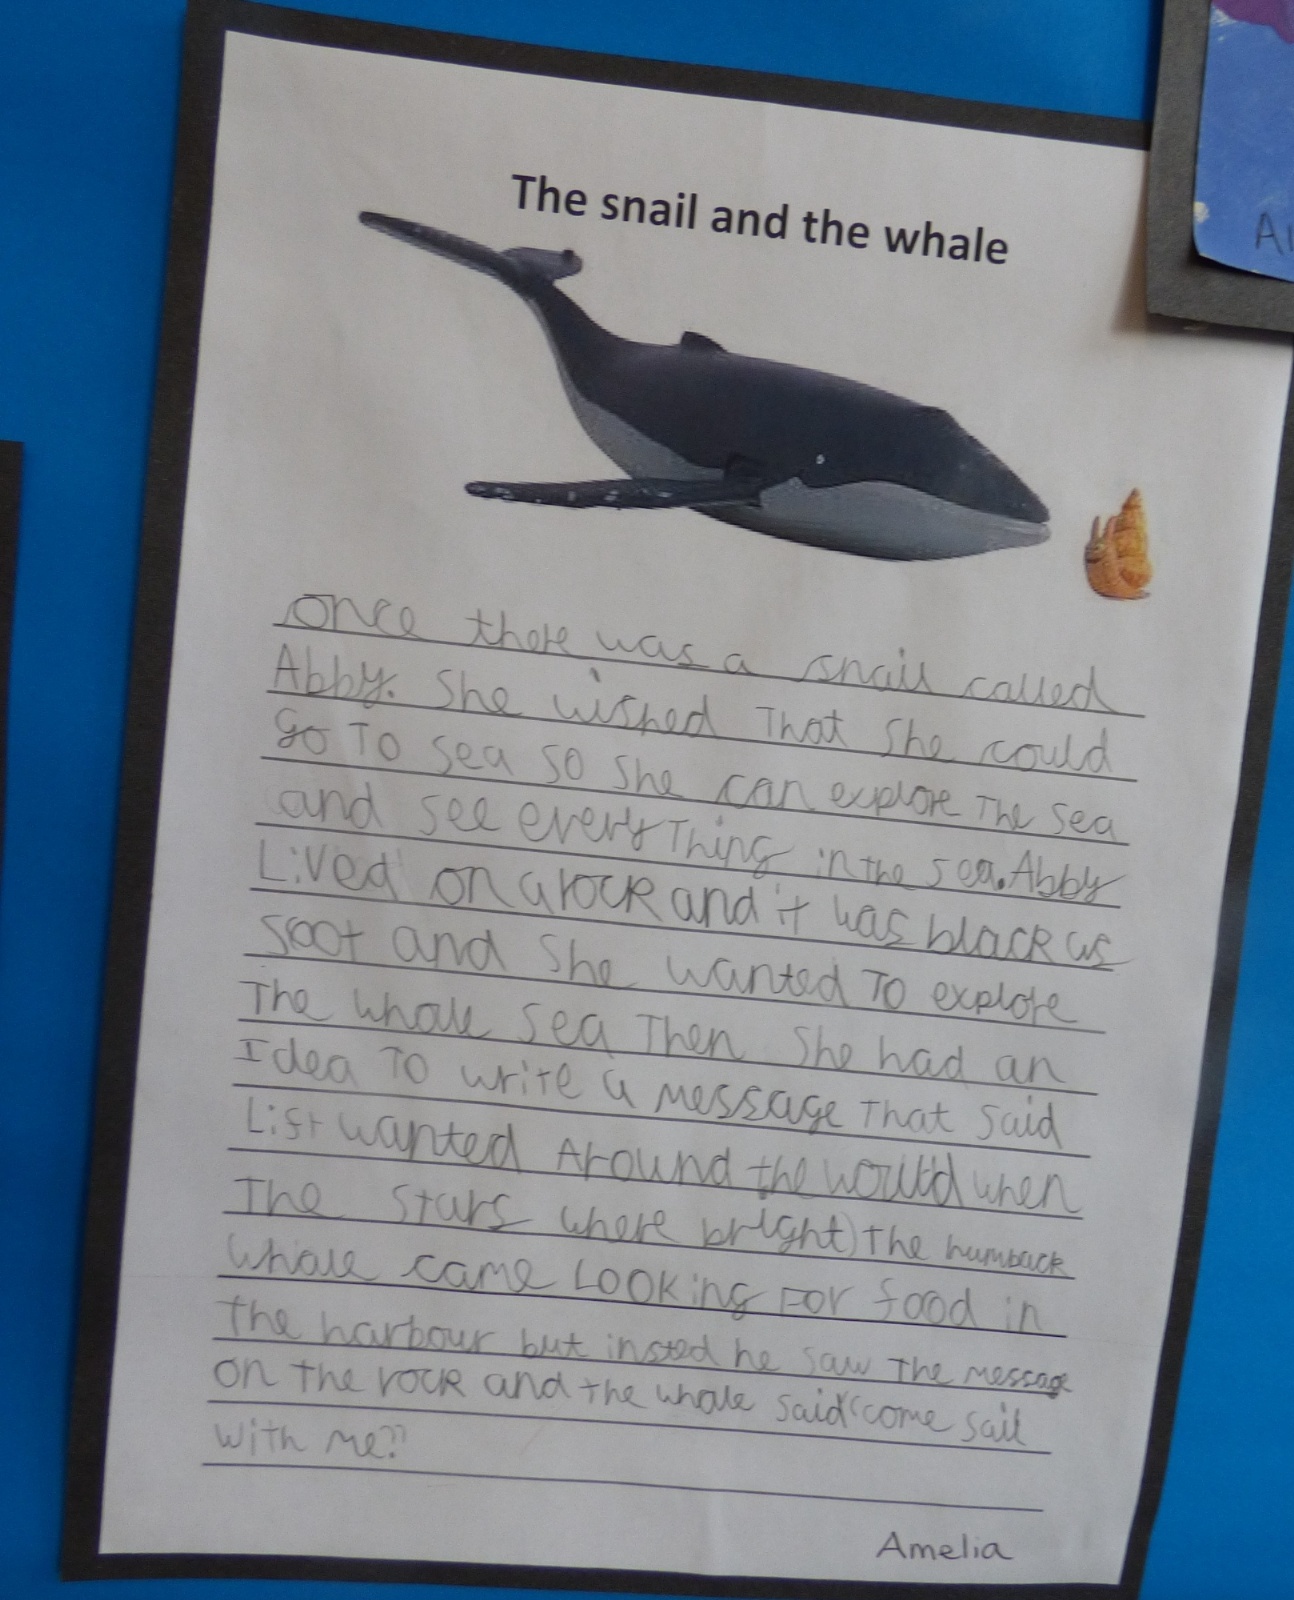 The snail and the whale
once there was a snail called
Abby. She wished That She could
go To sea so She can explore The sea
and see everyThing in the sea. Abby
Lived on a rock and it was black as
soot and She wanted To explore
The whale sea Then She had an
Idea To write a message That said
List wanted Around the would when
The stars where bright) The humback
whale came Looking For food in
the harbour but insted he saw The message
on the rock and the whale said "come sail
with me?"
Amelia
A